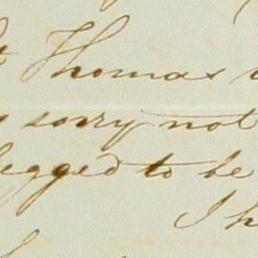 Thomas
sorry not
begged to be
I h